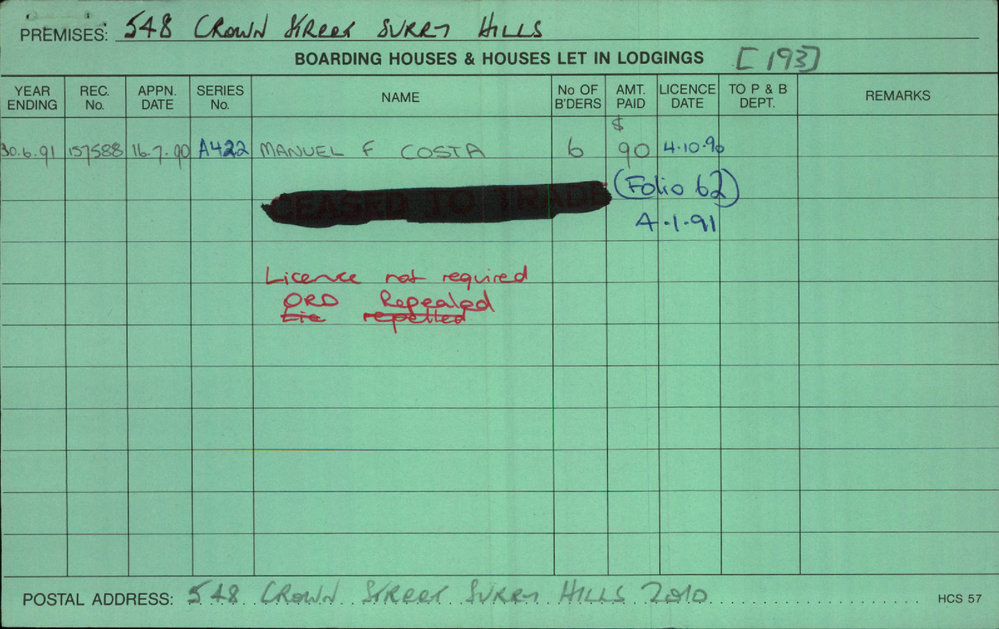 PREMISES: 548 CROWN STREET SURRY HILLS
BOARDING HOUSES & HOUSES LET IN LODGINGS [193]
YEAR ENDING REC. No. APPN. DATE SERIES No. NAME No OF B'DERS AMT. PAID LICENCE DATE TO P & B DEPT. REMARKS
30.6.91 157588 16.7.90 A422 MANUEL F COSTA 6 $90 4.10.90
CEASED TO TRADE (Folio 62)
4.1.91
Licence not required
ORD Repealed
Lic repelled
POSTAL ADDRESS: 548 CROWN STREET SURRY HILLS 2010 HCS 57